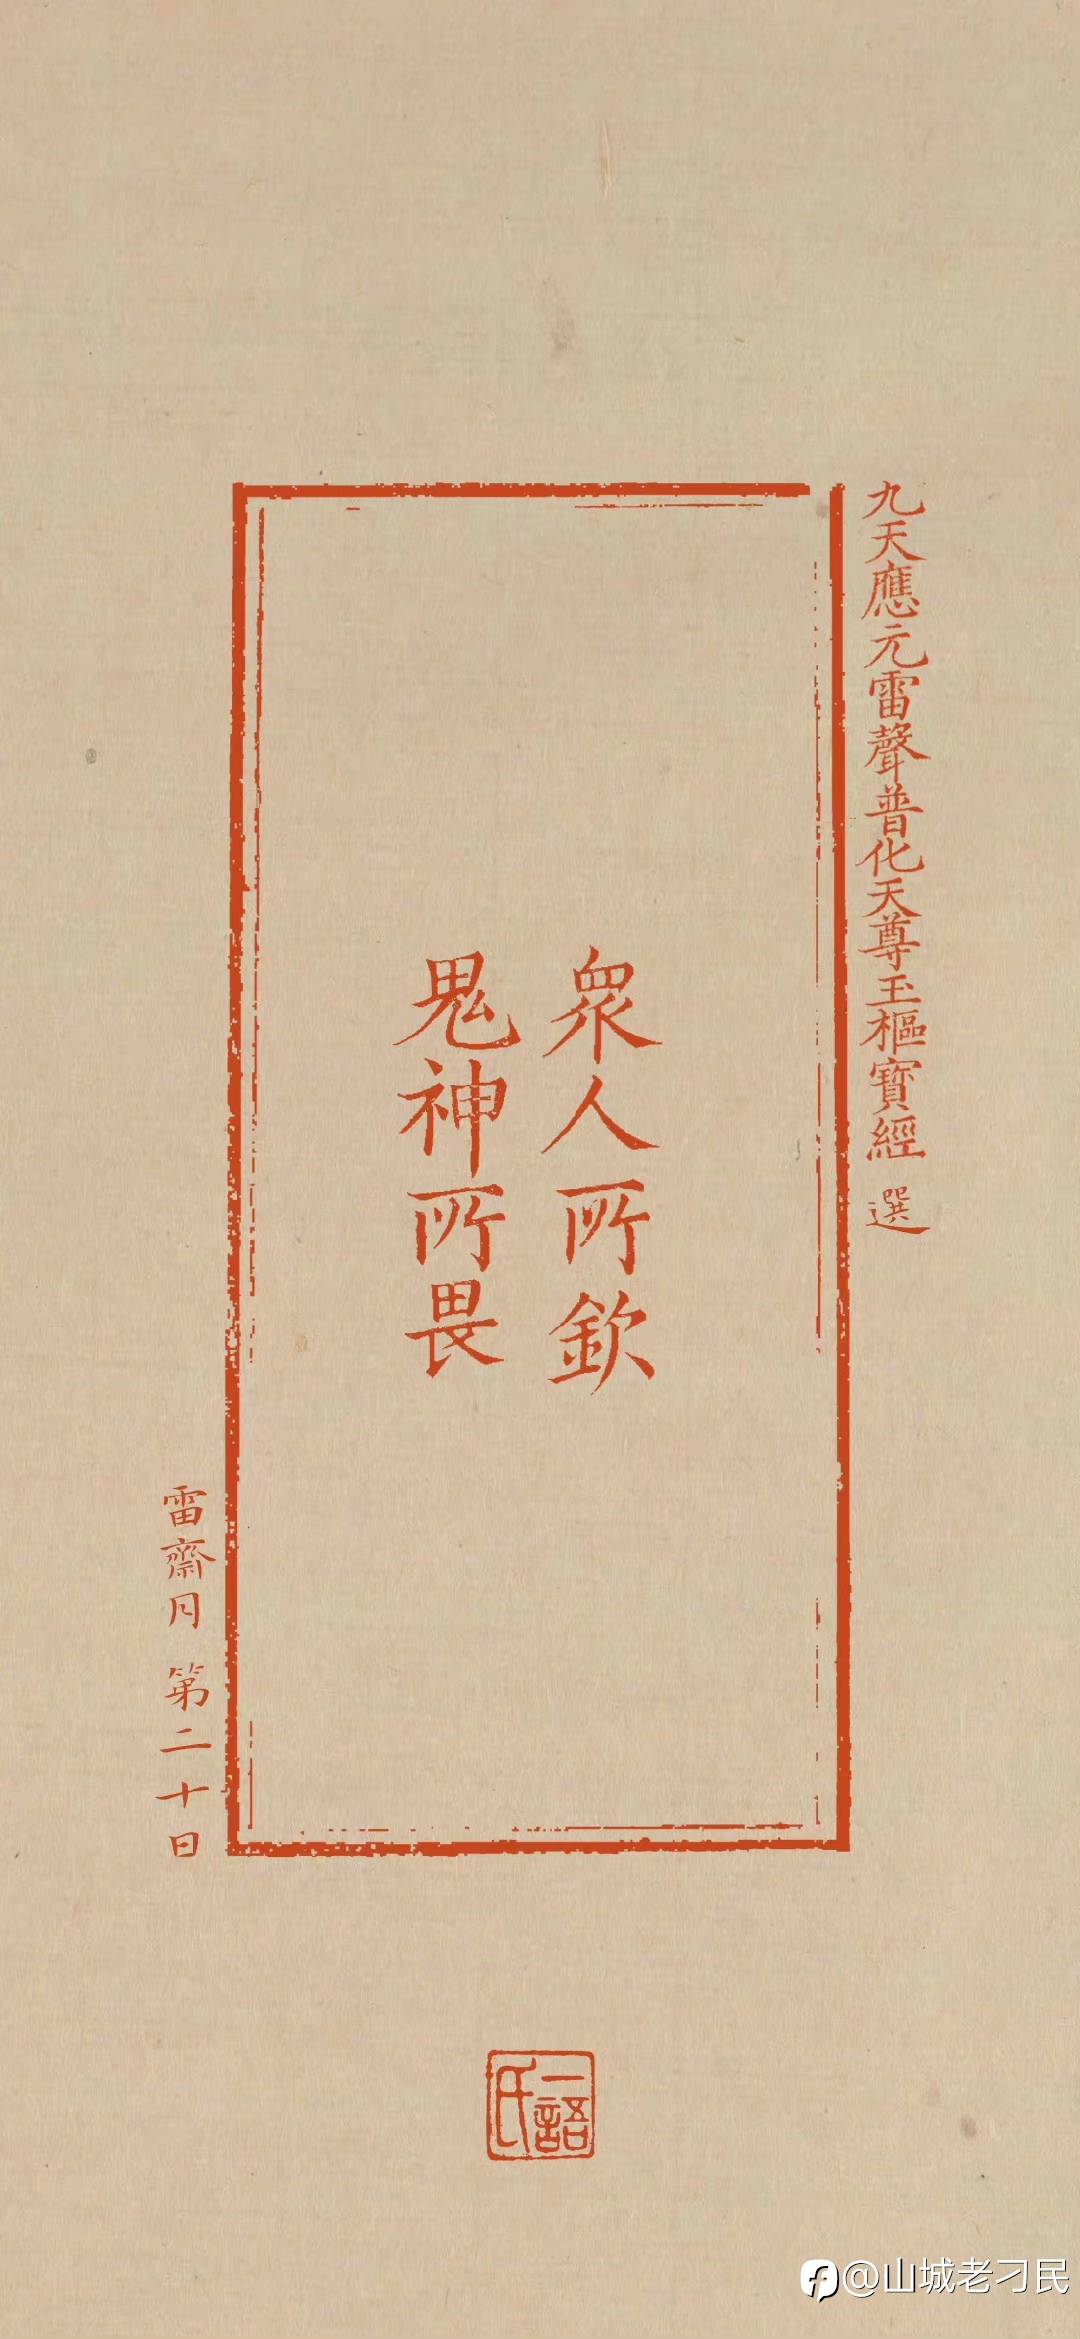 九天應元雷聲普化天尊玉樞寶經 選
眾人所欽
鬼神所畏
雷齋月 第二十日
一語氏
@山城老刁民